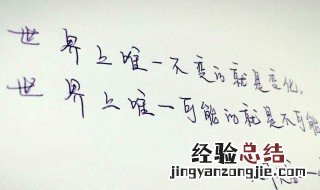 世界上唯一不变的就是变化,
世界上唯一可能的就是不可能
经验总结
jingyanzongjie.com